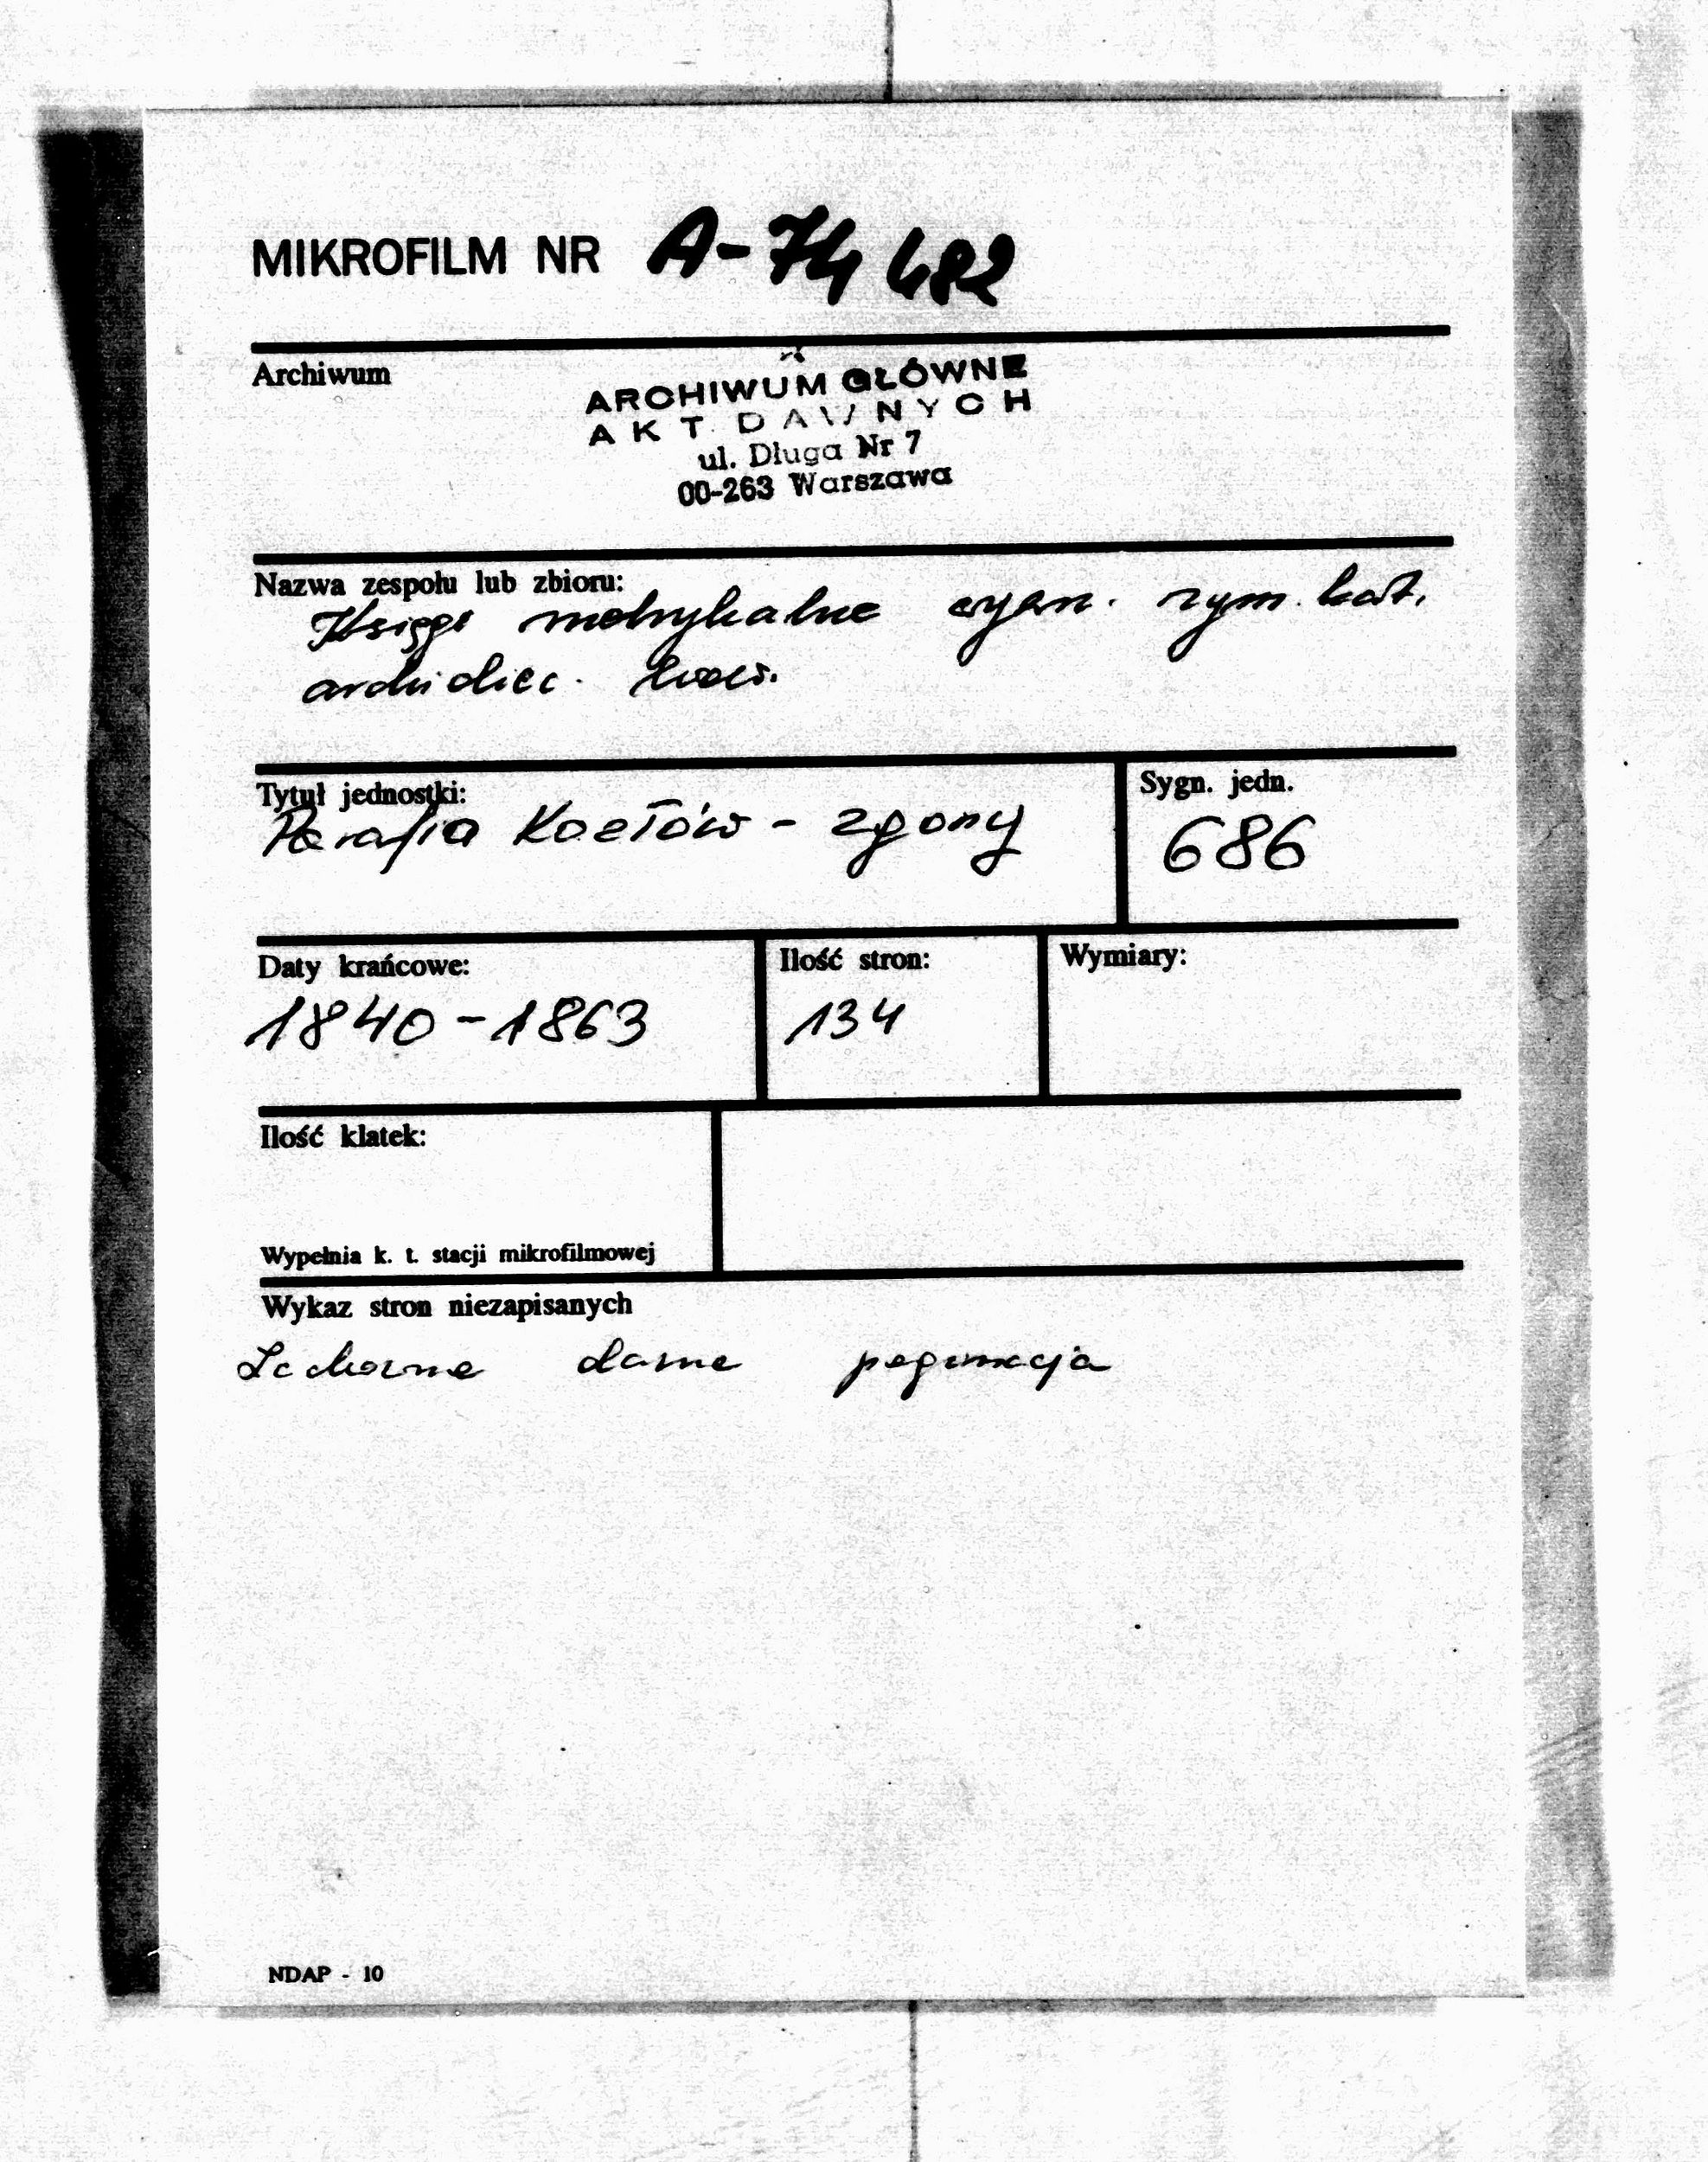 MIKROFILM NR A-74482
Archiwum
ARCHIWUM GŁÓWNE
AKT DAWNYCH
ul. Długa Nr 7
00-263 Warszawa
Nazwa zespołu lub zbioru:
Księgi metrykalne wyzn. rzym. kat.
archidiec. lwow.
Tytuł jednostki:
Parafia Kozłów - zgony
Sygn. jedn.
686
Daty krańcowe:
1840-1863
Ilość stron:
134
Wymiary:
Ilość klatek:
Wypełnia k. t. stacji mikrofilmowej
Wykaz stron niezapisanych
Zachowane dawne paginacja
NDAP - 10